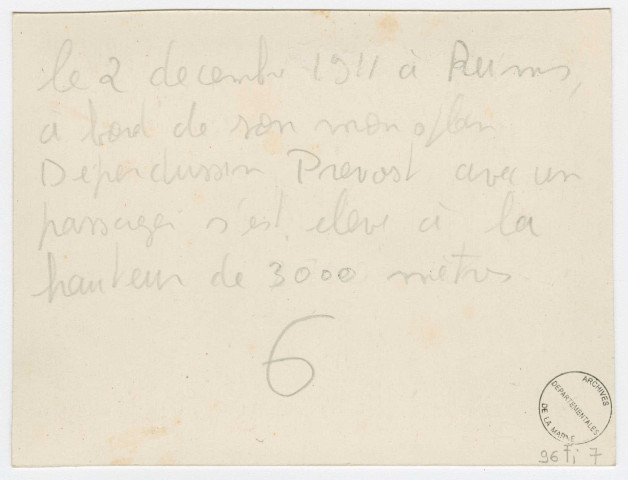 le 2 decembre 1911 à Reims,
à bord de son monoplan
Deperdussin Prevost avec un
passager s'est elevé à la
hauteur de 3000 mètres
6
ARCHIVES
DÉPARTEMENTALES
DE LA MARNE
96 Fi 7